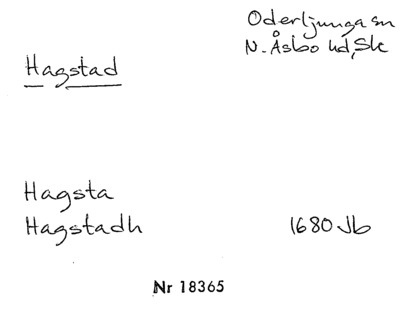 Oderljunga sn
N. Åsbo hd, Sk
Hagstad
Hagsta
Hagstadh 1680 Jb
Nr 18365